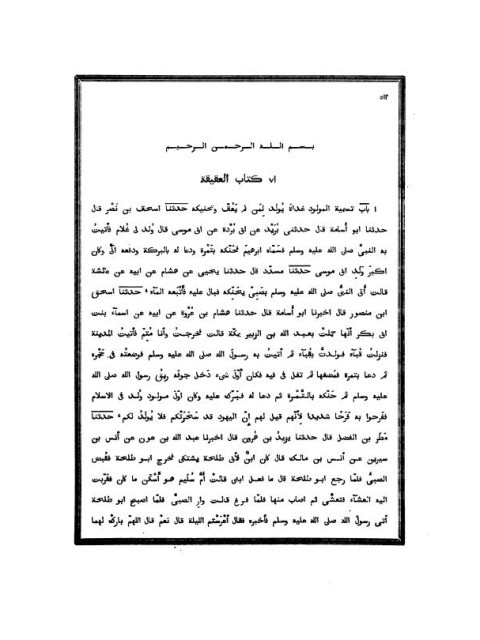 بسم اللـه الرحمـن الرحيـم
٧١ كتاب العقيقة
١ باب تسمية المولود غداة يُولَد لِمَن لم يَعُقّ وتحنيكه حدثنا اسحق بن نَصْر قال
حدثنا ابو أُسامة قال حدثنى بُرَيْد عن ابى بُرْدة عن ابى موسى قال وُلد لى غُلام فأتيتُ
به النبىَّ صلى الله عليه وسلم فسمّاه ابرهيمَ فحَنّكه بتَمْرة ودعا له بالبركة ودفعه الىَّ وكان
اكبرَ وَلَدِ ابى موسى حدثنا مسدّد قال حدثنا يحيى عن هشام عن ابيه عن عائشة
قالت أُتى النبىُّ صلى الله عليه وسلم بصَبىٍّ يحنّكه فبال عليه فأَتْبَعه المآءَ، حدثنا اسحق
ابن منصور قال اخبرنا ابو أُسامة قال حدثنا هشام بن عُروة عن ابيه عن اسمآء بنت
ابى بكر أنّها حملتْ بعبد الله بن الزبير بمكّة قالت فخرجتُ وأنا مُتِمّ فأتيتُ المدينة
فنزلتُ قُبآءَ فولدتُ بقُبآء ثم أتيتُ به رسولَ الله صلى الله عليه وسلم فوضعتُه فى حَجْره
ثم دعا بتمرة فمضغها ثم تفل فى فيه فكان أوّلَ شىء دَخل جوفَه رِيقُ رسول الله صلى الله
عليه وسلم ثم حَنّكه بالتَّمْرة ثم دعا له فبَرَّك عليه وكان اوّلَ مولود وُلد فى الاسلام
ففرحوا به فَرَحًا شديدا لِأنّهم قيل لهم إنّ اليهود قد سَحَرَتْكم فلا يُولَدُ لكم، حدثنا
مَطَر بن الفضل قال حدثنا يزيد بن هٰرون قال اخبرنا عبد الله بن عون عن أنس بن
سيرين عن أنس بن مالك قال كان ابنٌ لأبى طلحة يشتكى فخرج ابو طلحة فقُبض
الصبىُّ فلمّا رجع ابو طلحة قال ما فعل ابنى قالت أُمّ سُليم هو أَسْكَنُ ما كان فقرّبت
اليه العشآءَ فتعشّى ثم اصاب منها فلمّا فرغ قالت وارِ الصبىَّ فلمّا اصبح ابو طلحة
أتى رسولَ الله صلى الله عليه وسلم فأخبره فقال أَعْرَسْتُم الليلةَ قال نعمْ قال اللهمّ بارِكْ لهما